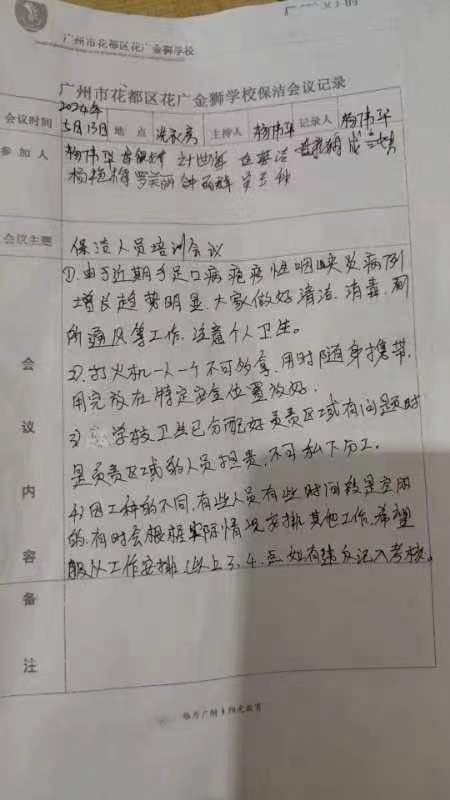 广州市花都区花广金狮学校
广州市花都区花广金狮学校保洁会议记录
会议时间 2024年5月13日 地点 洗衣房 主持人 杨伟华 记录人 杨伟华
参加人 杨伟华
杨艳梅 罗美丽
会议主题 保洁人员培训会议
会议内容
①.由于近期手足口病疱疹性咽峡炎病例
增长趋势明显.大家做好清洁.消毒.厕
所通风等工作.注意个人卫生。
2).打火机一人一个不可多拿.用时随身携带.
用完放在特定安全位置放好.
3)学校卫生已分配好负责区域有问题时
是负责区域的人员担责,不可私下分工。
4)因工种的不同.有些人员有些时间段是空闲
的.有时会根据实际情况安排其他工作.希望
服从工作安排.(以上3、4.点如有违反记入考核。
备注